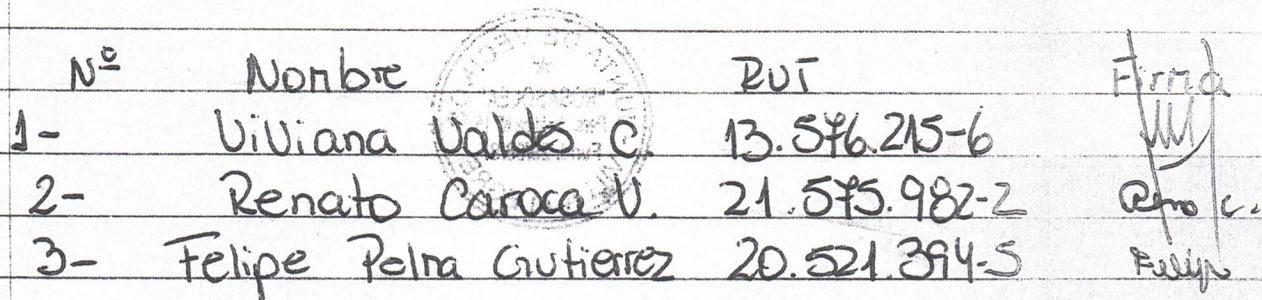 Nº Nombre RUT Firma
1- Viviana Valdés C. 13.576.215-6
2- Renato Caroca V. 21.575.982-2
3- Felipe Gutierrez 20.521.394-5 Felipe